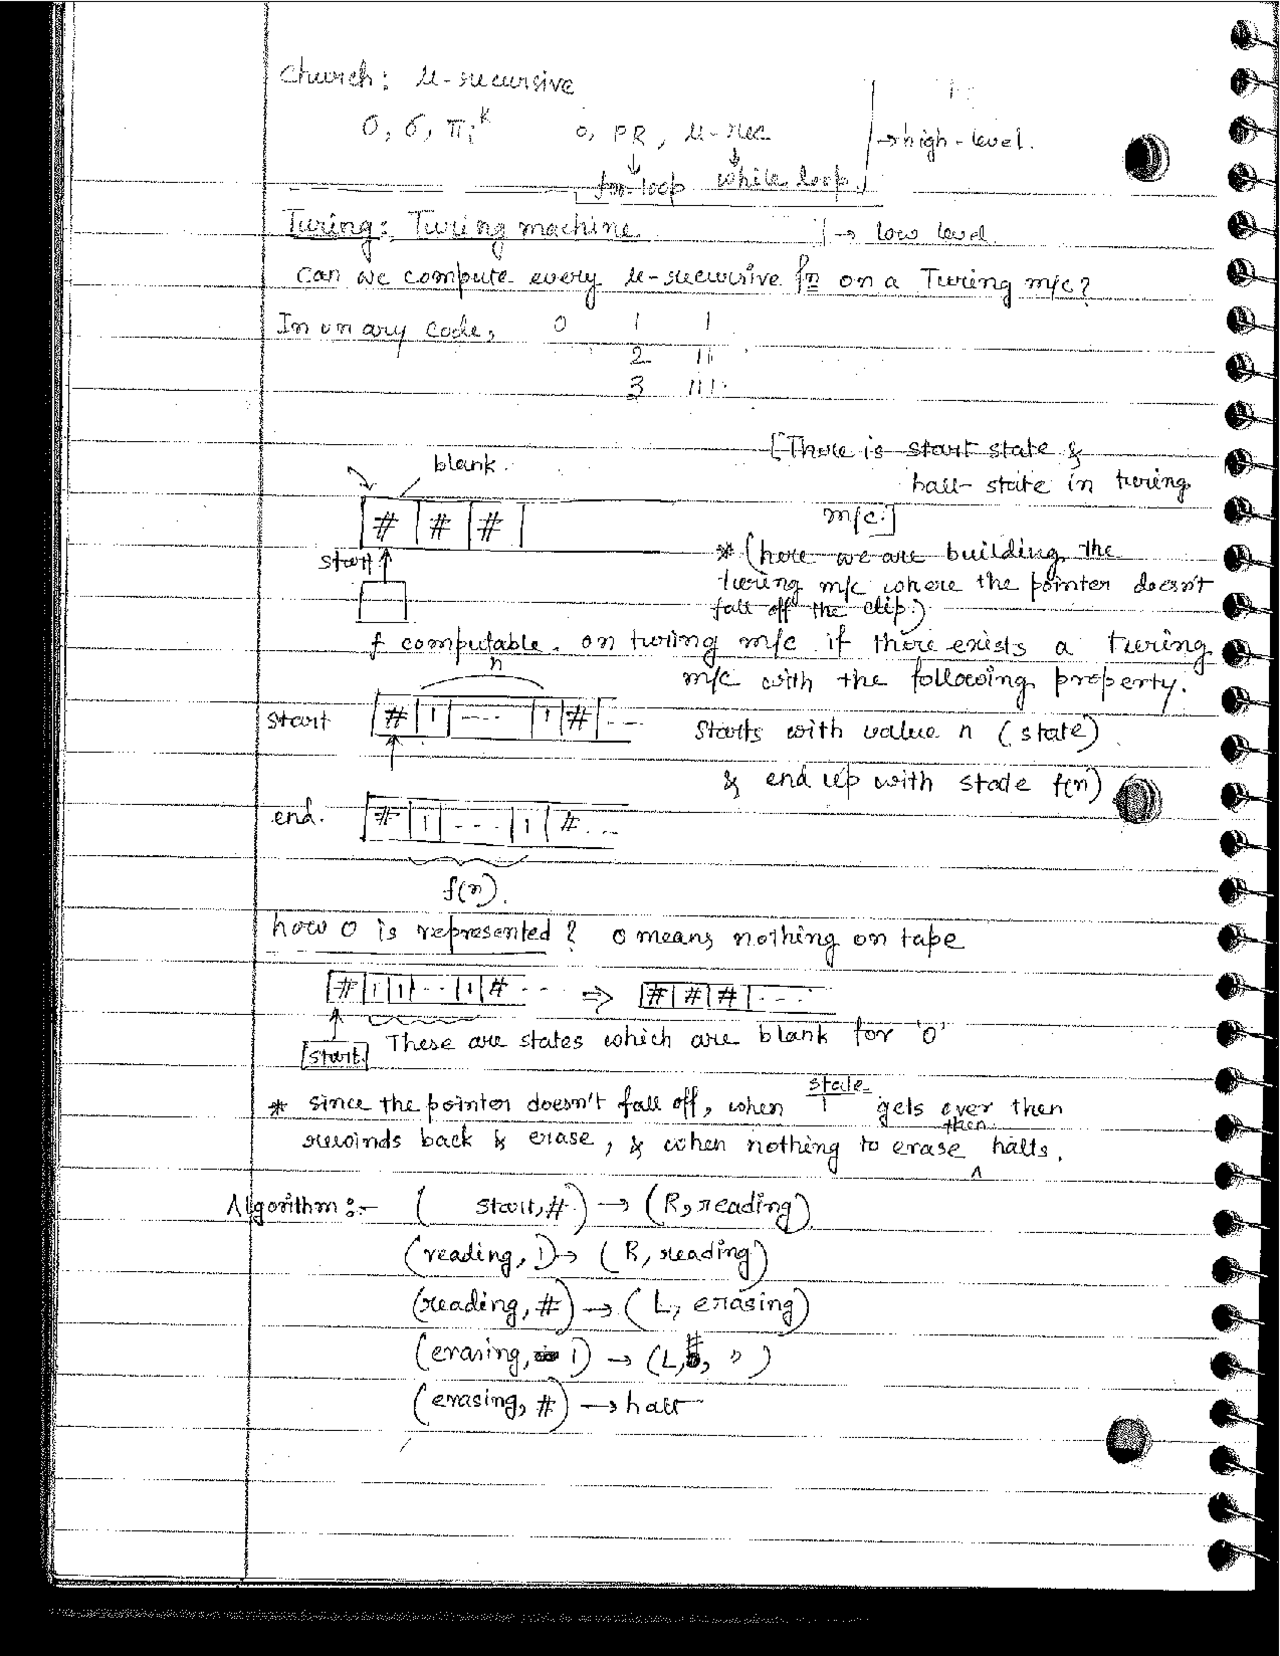 Church: μ-recursive
0, σ, πᵢᵏ o, PR, μ-rec → high-level.
↓ ↓
for-loop while loop
Turing: Turing machine → low level.
Can we compute every μ-recursive fn on a Turing m/c?
In unary code, 0 1 1
2 11
3 111
[There is start state &
halt state in turing
m/c.]
blank.
# # #
start
* (here we are building the
turing m/c where the pointer doesn't
fall off the clip.)
f computable on turing m/c if there exists a turing
m/c with the following property.
n
start # 1 ---- 1 # --- starts with value n (state)
& end up with state f(n)
end. # 1 --- 1 # ...
f(n).
how 0 is represented? 0 means nothing on tape
# 1 1 ... 1 # --- ⇒ # # # ----
start These are states which are blank for '0'
* since the pointer doesn't fall off, when state 1 gets over then
rewinds back & erase, & when nothing to erase then halts.
Algorithm:- ( start, #) → (R, reading)
(reading, 1) → (R, reading)
(reading, #) → (L, erasing)
(erasing, 1) → (L, #, ")
(erasing, #) → halt